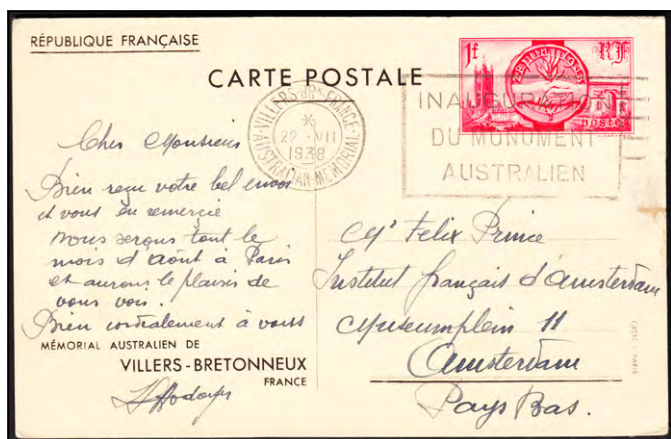 RÉPUBLIQUE FRANÇAISE
CARTE POSTALE
1f RF
POSTES
VILLERS-BRx-FRANCE
22 · VII
1938
AUSTRALIAN-MEMORIAL
INAUGURATION
DU MONUMENT
AUSTRALIEN
Cher Monsieur
Bien reçu votre bel envoi
et vous en remercie
nous serons tout le
mois d'août à Paris
et aurons le plaisir de
vous voir.
Bien cordialement à vous
MÉMORIAL AUSTRALIEN DE
VILLERS-BRETONNEUX
FRANCE
Mr Felix Prince
Institut français d'Amsterdam
Museumplein 11
Amsterdam
Pays Bas.